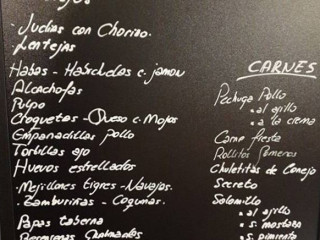 Judias con Chorizo.
Lentejas
Habas - Habichelas c. jamon
Alcachofas
Pulpo
Croquetas - Queso c. Mojos
Empanadillas Pollo
Tortillas ajo
Huevos estrellados
Mejillones tigres - Navajas.
Zamburiñas - Coquinas.
Papas taberna
CARNES
Pechuga Pollo
al ajillo
a la crema
Carne fiesta
Rollitos
Chuletitas de Conejo
Secreto
Solomillo
al ajillo
s. mostaza
s. pimienta